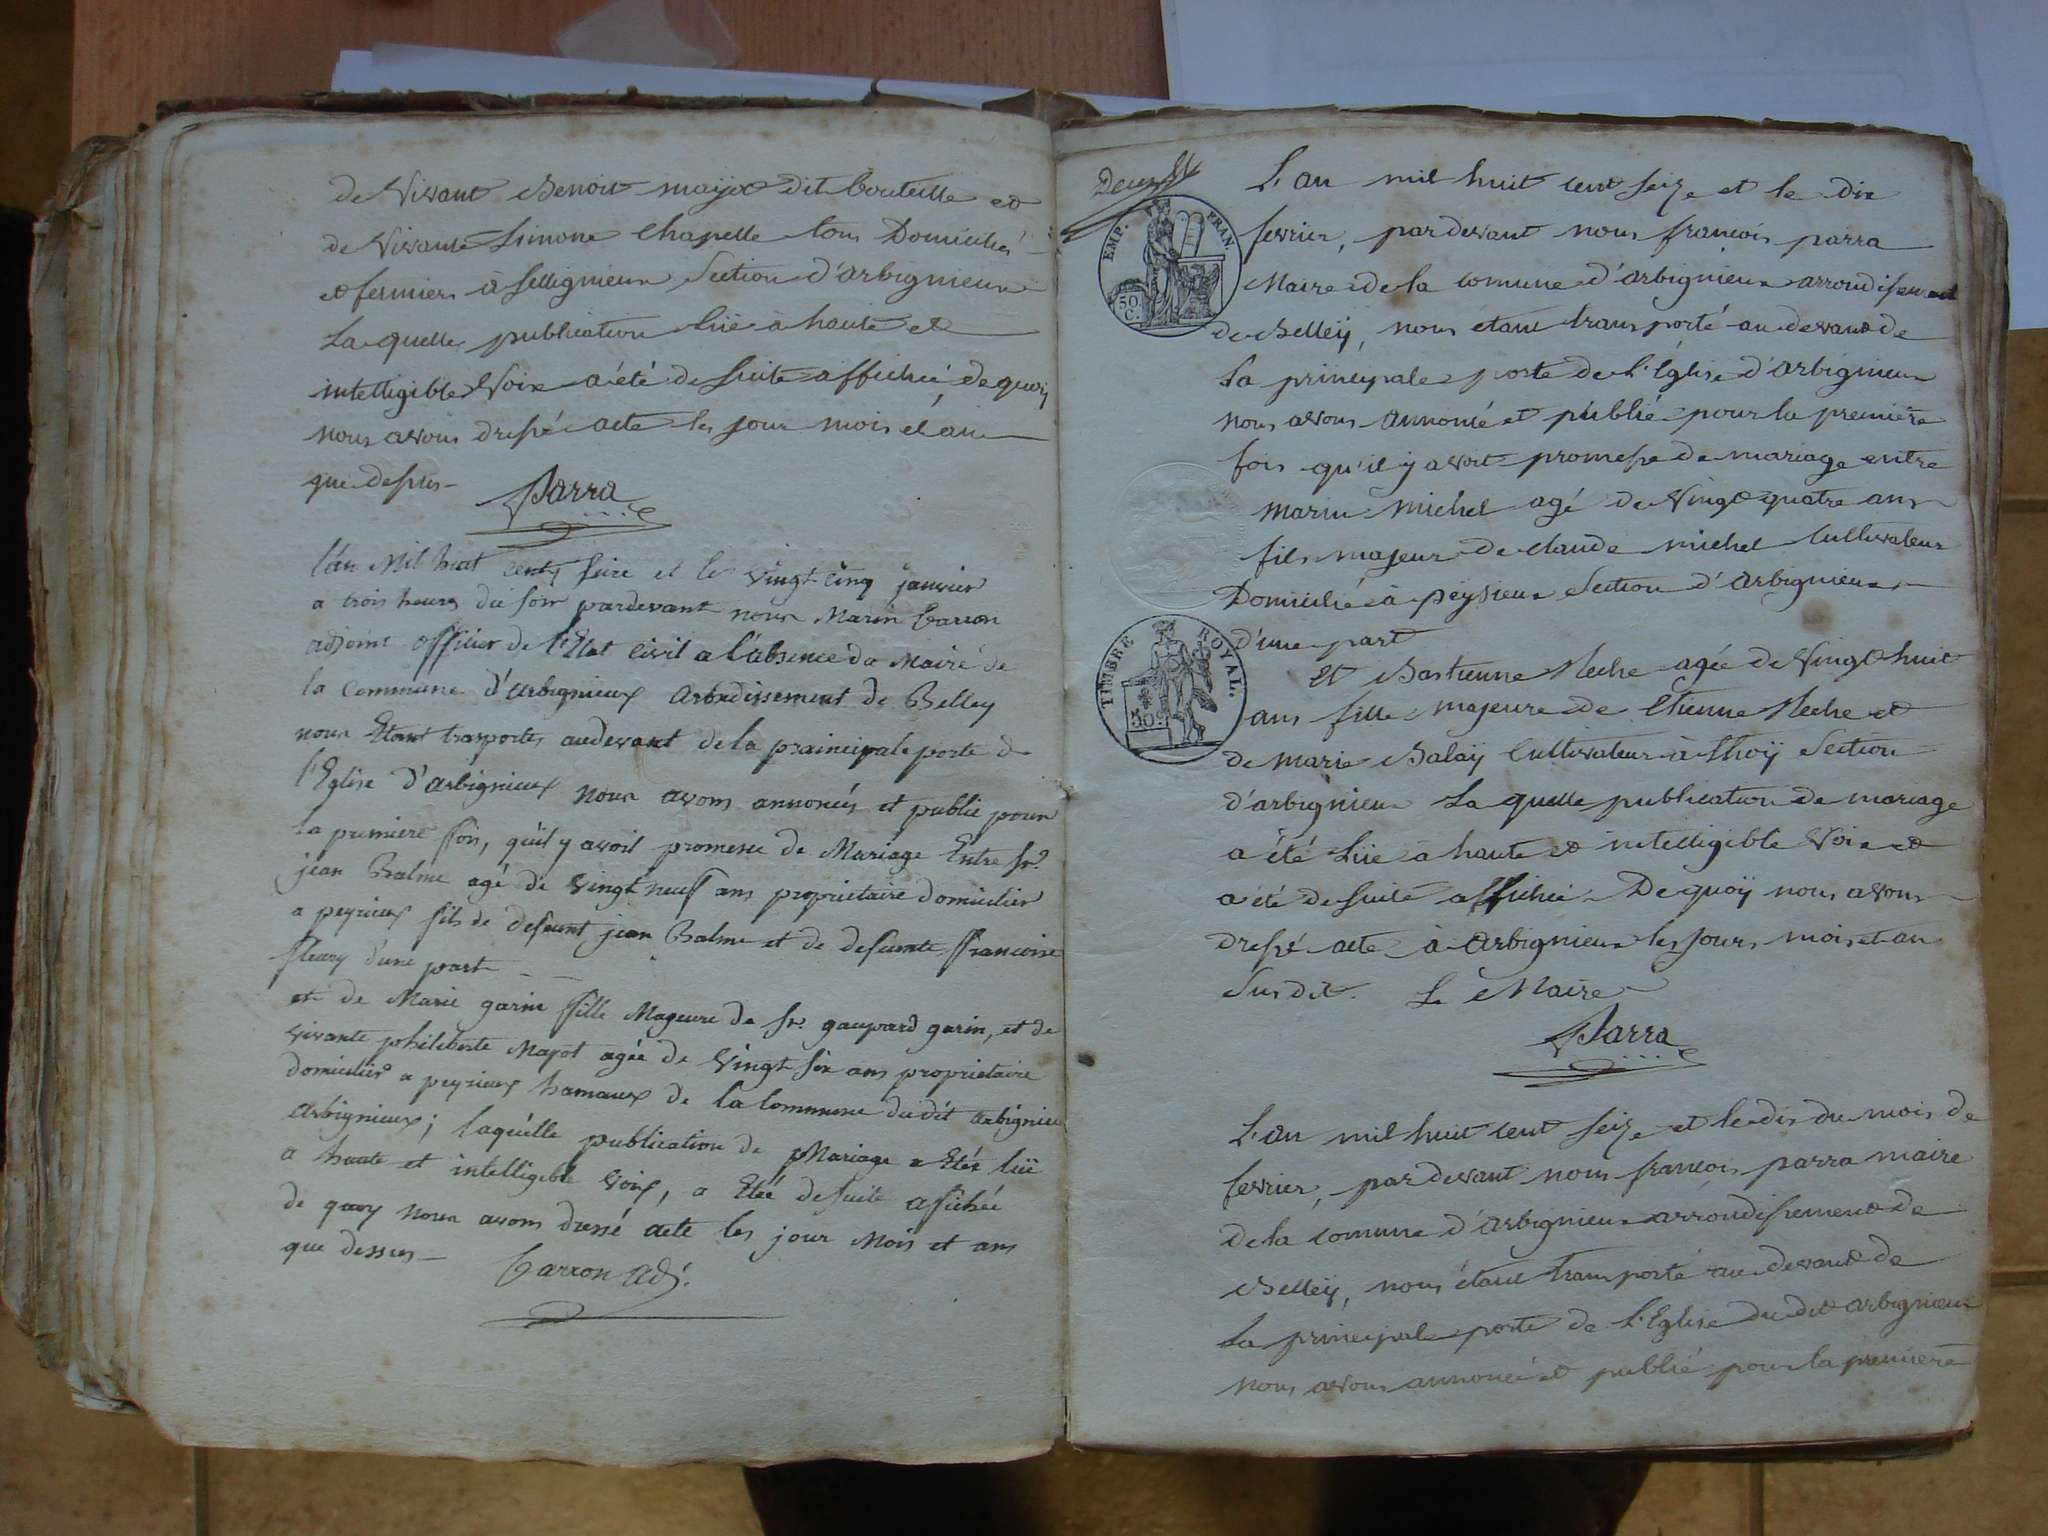 de vivant Benoit majot dit bouteille et
de vivante Simone Chapelle tous Domiciliés
et fermiers à Sillignieux Section d'arbignieux
La quelle publication lüe à haute et
intelligible Voix a été de suite affichée, de quoi
nous avons dressé acte les jour mois et an
que dessus
Parra
l'an Mil huit cents seize et le vingt cinq janvier
a trois heures du soir pardevant nous Marin Carron
adjoint officier de l'Etat Civil a l'absence du Maire de
la Commune d'arbignieux arondissement de Belley
nous Etant trasportes audevant de la prainicipale porte de
l'Eglise d'arbignieux nous avons annoncés et publié pour
la premiere fois, qu'il y avoit promesse de Mariage Entre Sr.
jean Balme agé de vingt neuf ans proprietaire domicilier
a peyrieux fils de defeunt jean Balme et de defeunte francoise
fleury d'une part
et de Marie garin fille Mageure de Sr. gaspard garin, et de
vivante philiberte Majot agée de vingt six ans proprietaire
domicilier a peyrieux hamaux de la Commune du dit arbignieu
arbignieux; laquelle publication de Mariage a Etée lüe
a haute et intelligible voix, a Etée de suite affichée
de quoy nous avons dressé acte les jour Mois et ans
que dessus
Carron adj.
EMP. FRAN.
50. C.
TIMBRE ROYAL.
50 C.
L'an mil huit cent seize et le dix
fevrier, pardevant nous francois parra
Maire de la comune d'arbignieux arrondissement
de Belleÿ, nous etant transporté au devant de
la principale porte de l'Eglise d'arbignieux
nous avons annoncé et publié pour la premiere
fois qu'il y avoit promesse de mariage entre
marin michel agé de Vingt quatre ans
fils majeur de claude michel Cultivateur
Domicilié à peÿrieux Section d'Arbignieux
D'une part
Et Bastienne agée de Vingt huit
ans fille majeure de Etienne et
de marie Balaÿ Cultivateur à thoÿ Section
d'arbignieux La quelle publication de mariage
a été Lüe a haute et intelligible Voix et
a été de suite affichée De quoÿ nous avons
dressé acte à Arbignieux les jours mois et an
Sus dit. Le Maire
Parra
L'an mil huit cent seize et le dix du mois de
fevrier, pardevant nous francois parra maire
de la comune d'Arbignieux arrondissement de
Belleÿ, nous étant transporté au devant de
la principale porte de l'Eglise du dit arbignieux
nous avons annoncé et publié pour la premiere